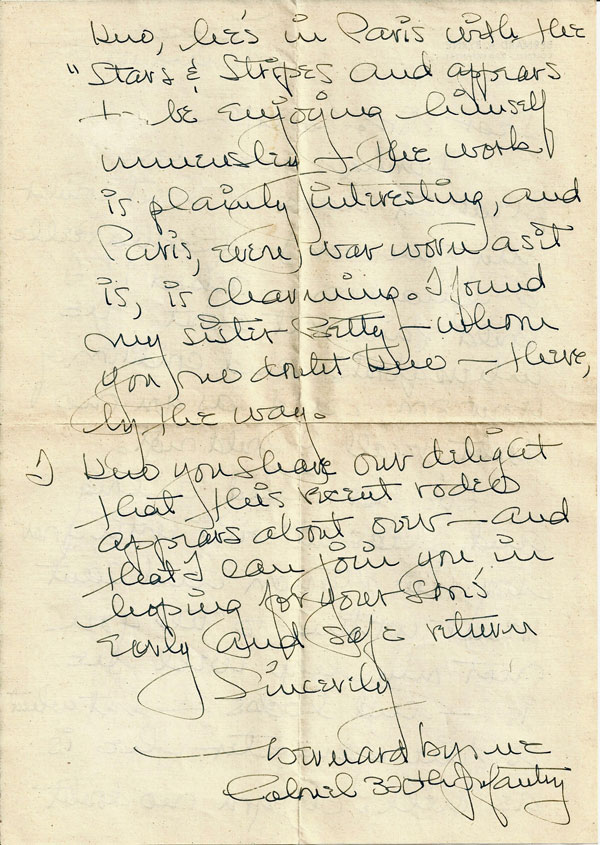 Kno, he's in Paris with the
"Stars & Stripes and appears
to be enjoying himself
immensley – the work
is plainly interesting, and
Paris, even war worn as it
is, is charming. I found
my sister Betty – whom
you no doubt kno – there,
by the way.
I kno you share our delight
that this recent rodeo
appears about over – and
that I can join you in
hoping for your son's
early and safe return
Sincerely
Bernard Byrne
Colonel 320th Infantry